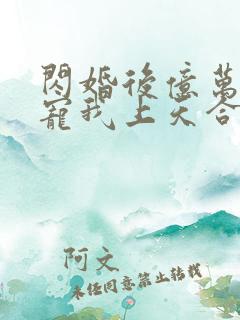 閃婚後億萬
寵我上天合
阿文
未經同意禁止轉載